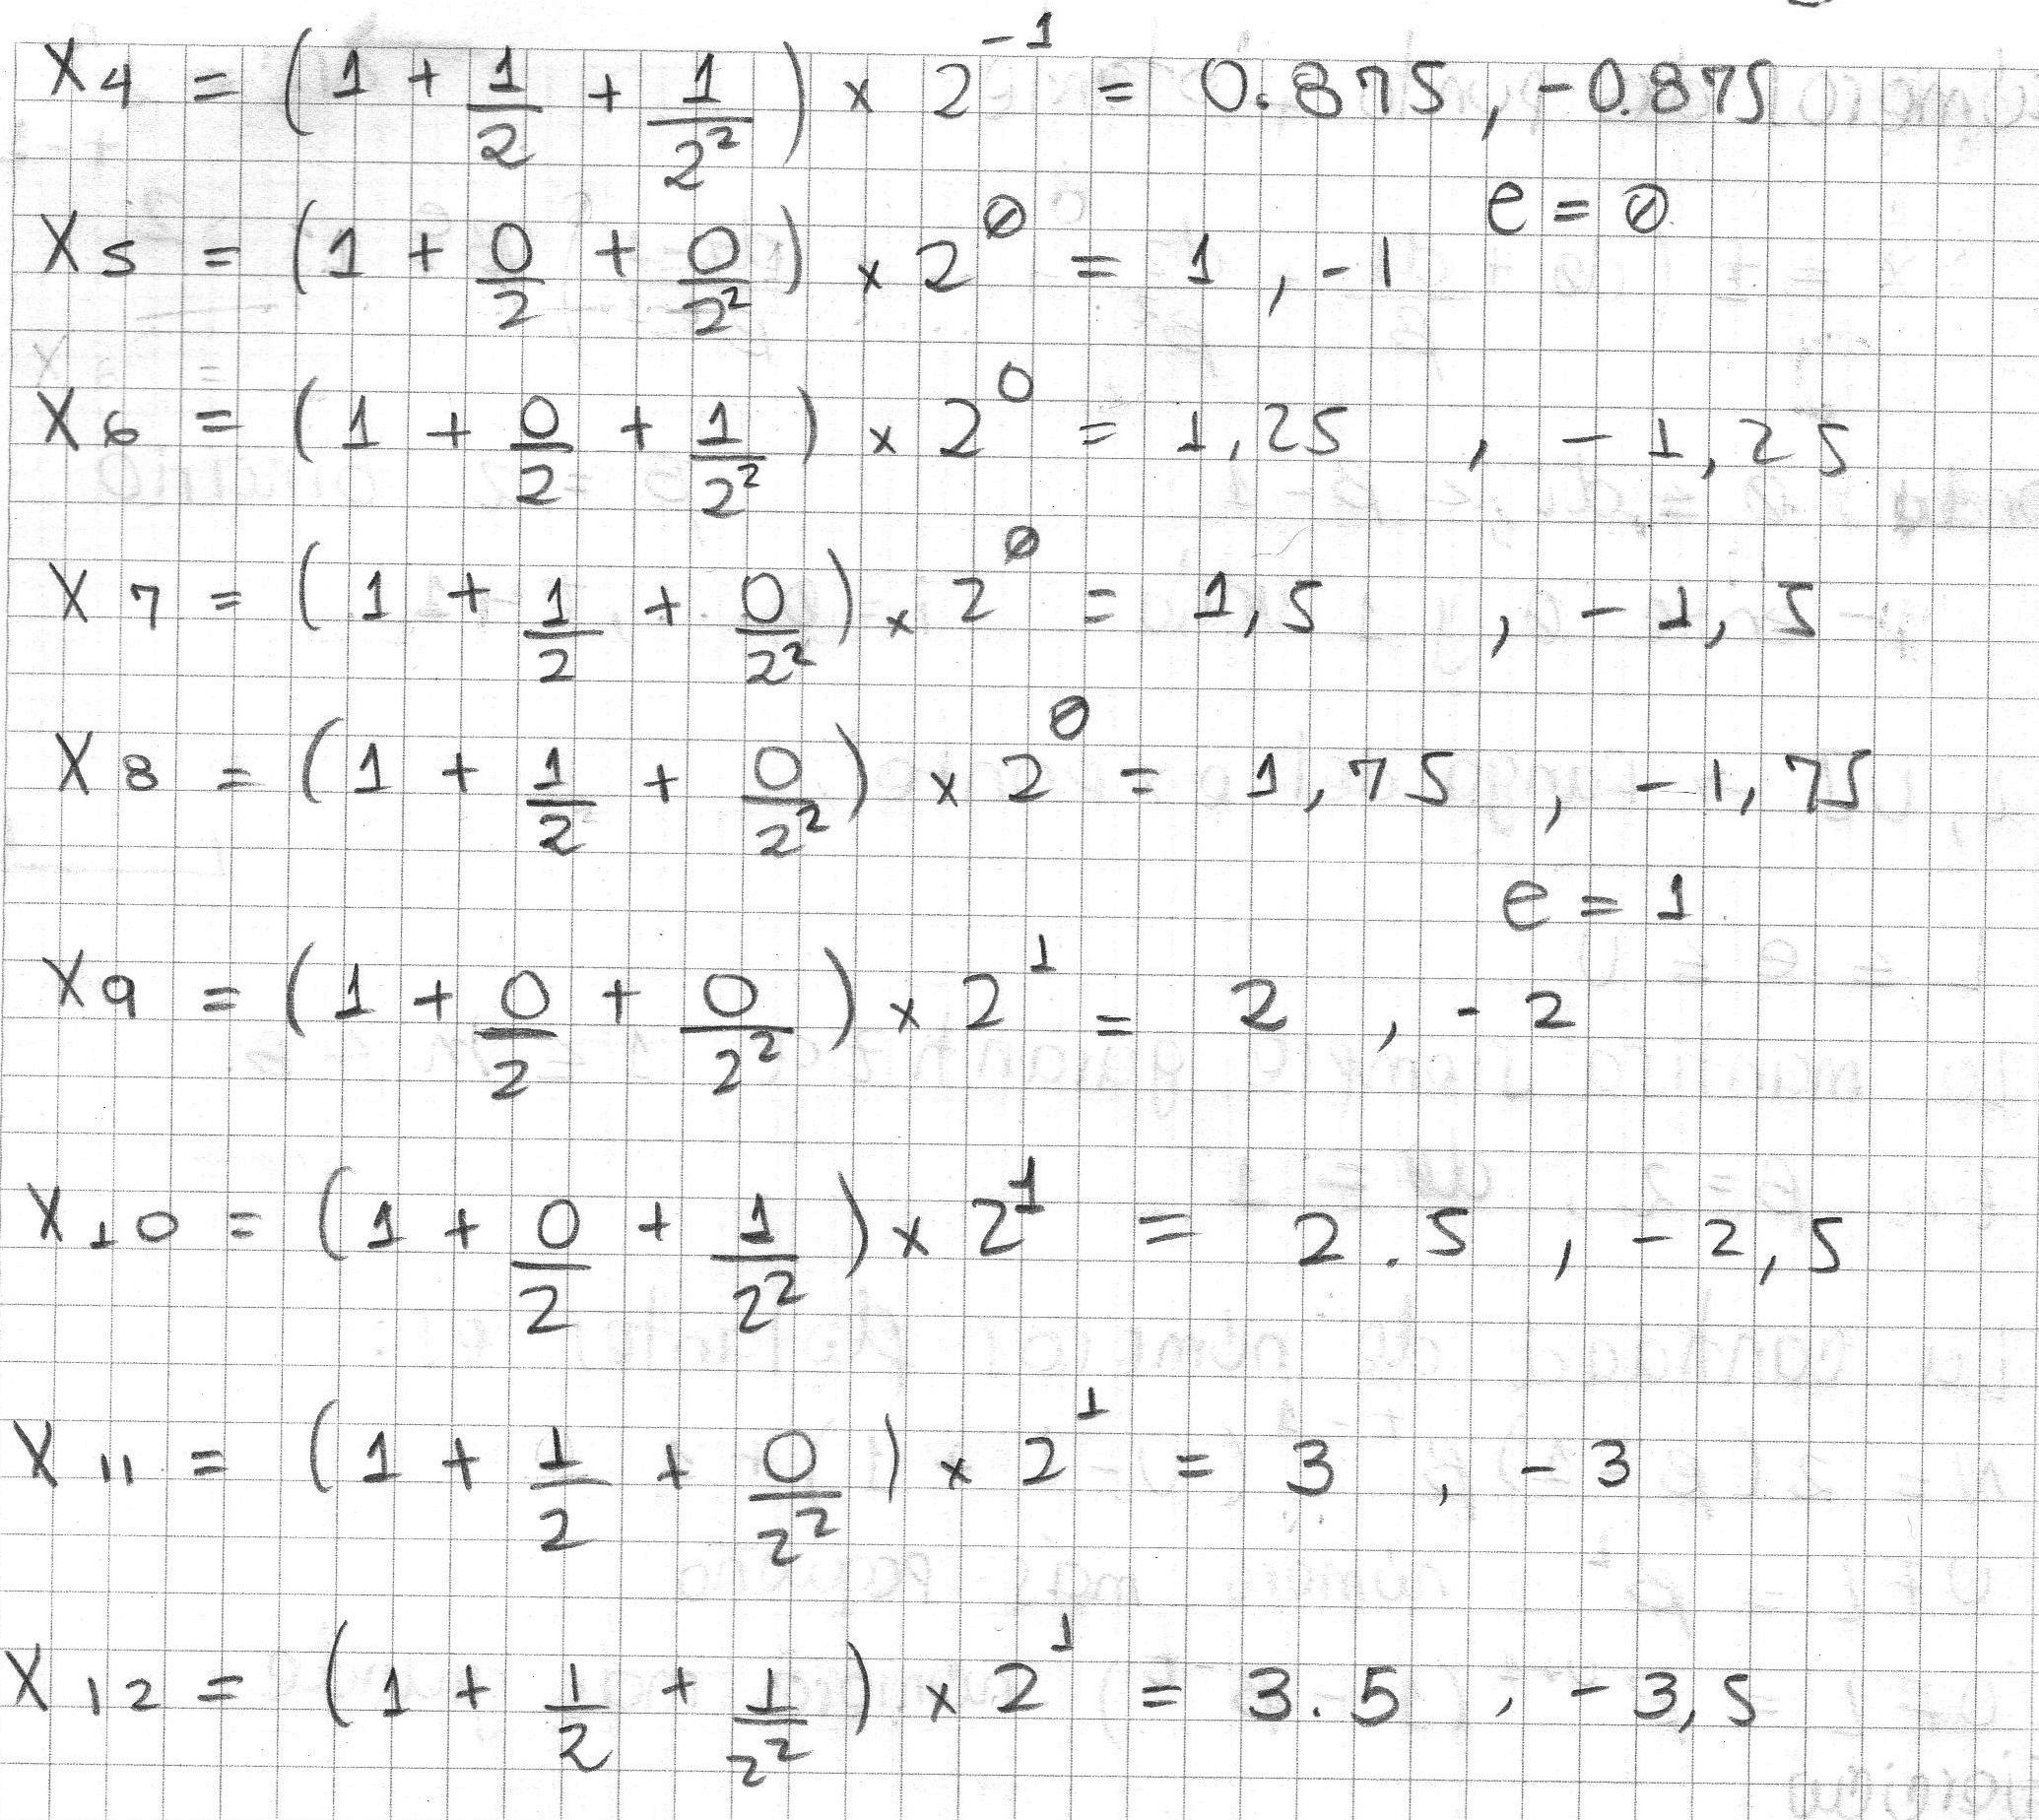 X4 = (1 + 1/2 + 1/2²) × 2⁻¹ = 0.875, -0.875
e = 0
X5 = (1 + 0/2 + 0/2²) × 2⁰ = 1, -1
X6 = (1 + 0/2 + 1/2²) × 2⁰ = 1,25 , -1,25
X7 = (1 + 1/2 + 0/2²) × 2⁰ = 1,5 , -1,5
X8 = (1 + 1/2 + 0/2²) × 2⁰ = 1,75 , -1,75
e = 1
X9 = (1 + 0/2 + 0/2²) × 2¹ = 2 , -2
X10 = (1 + 0/2 + 1/2²) × 2¹ = 2.5 , -2,5
X11 = (1 + 1/2 + 0/2²) × 2¹ = 3 , -3
X12 = (1 + 1/2 + 1/2²) × 2¹ = 3.5 , -3,5